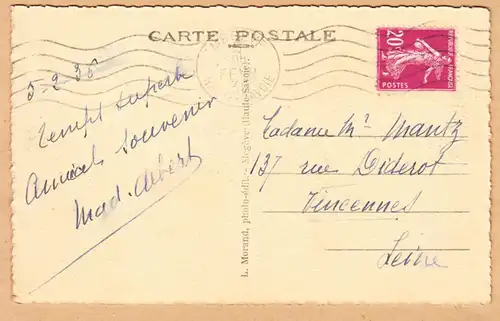 CARTE POSTALE
5-2-38
temps superbe
Amical Souvenir
Mad. Albert
L. Morand, photo-édit. - Megève (Haute-Savoie)
20c
REPUBLIQUE FRANÇAISE
POSTES
Madame Mr Mantz
137 rue Diderot
Vincennes
Seine